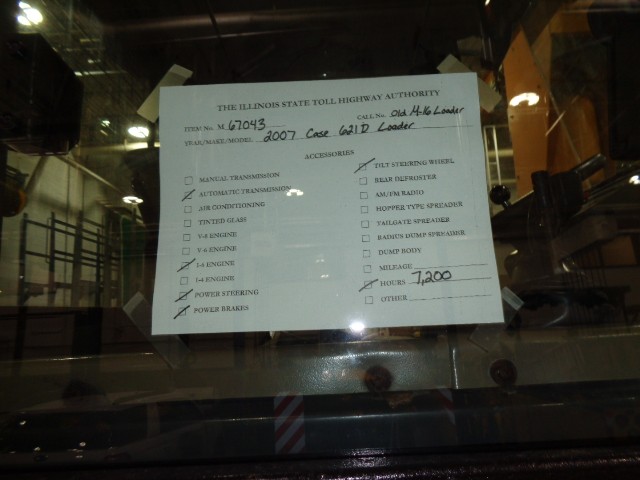 THE ILLINOIS STATE TOLL HIGHWAY AUTHORITY
ITEM No. M 67043 CALL No. Old M-16 Loader
YEAR/MAKE/MODEL 2007 Case 621D Loader
ACCESSORIES
MANUAL TRANSMISSION
AUTOMATIC TRANSMISSION
AIR CONDITIONING
TINTED GLASS
V-8 ENGINE
V-6 ENGINE
I-6 ENGINE
I-4 ENGINE
POWER STEERING
POWER BRAKES
TILT STEERING WHEEL
REAR DEFROSTER
AM/FM RADIO
HOPPER TYPE SPREADER
TAILGATE SPREADER
RADIUS DUMP SPREADER
DUMP BODY
MILEAGE
HOURS 7,200
OTHER